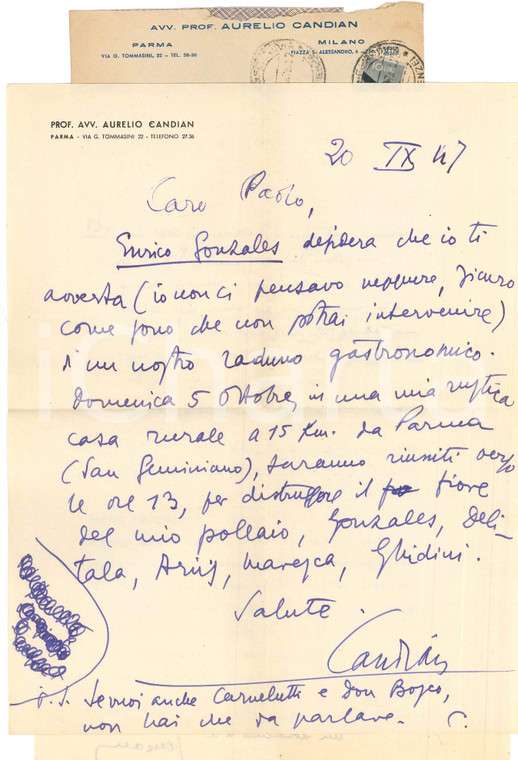 AVV. PROF. AURELIO CANDIAN
PARMA
VIA G. TOMMASINI, 22 - TEL. 58-36
MILANO
PIAZZA S. ALESSANDRO, 4
PROF. AVV. AURELIO CANDIAN
PARMA - VIA G. TOMMASINI 22 - TELEFONO 27.36
20 IX 47
Caro Paolo,
Enrico Gonzales desidera che io ti
avverta (io non ci pensavo neppure, sicuro
come sono che non potrai intervenire)
d'un nostro raduno gastronomico.
Domenica 5 ottobre, in una mia rustica
casa rurale a 15 Km. da Parma
(San Geminiano), saranno riuniti verso
le ore 13, per distruggere il fiore
del mio pollaio, Gonzales, Deli-
tala, Arù, Maresca, Ghidini.
Salute.
Candian
P.S. Se vuoi anche Carnelutti e Don Bosco,
non hai che da parlare. C.
iCharta